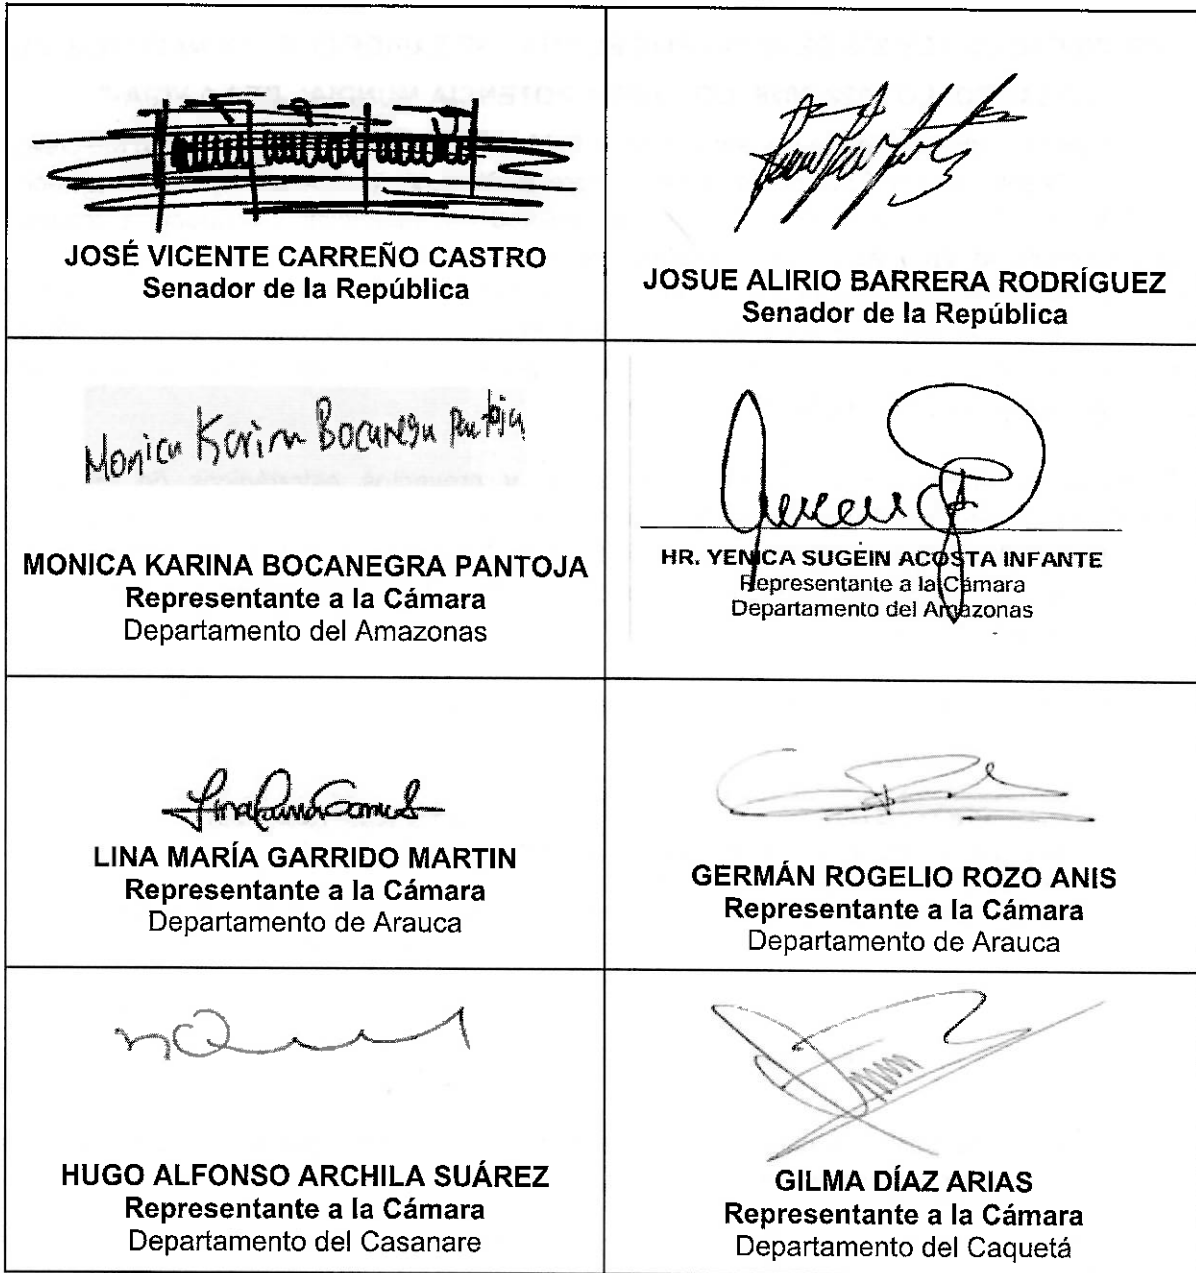 JOSÉ VICENTE CARREÑO CASTRO
Senador de la República
JOSUE ALIRIO BARRERA RODRÍGUEZ
Senador de la República
Monica Karina Bocanegra Pantoja
MONICA KARINA BOCANEGRA PANTOJA
Representante a la Cámara
Departamento del Amazonas
HR. YENICA SUGEIN ACOSTA INFANTE
Representante a la Cámara
Departamento del Amazonas
LINA MARÍA GARRIDO MARTIN
Representante a la Cámara
Departamento de Arauca
GERMÁN ROGELIO ROZO ANIS
Representante a la Cámara
Departamento de Arauca
HUGO ALFONSO ARCHILA SUÁREZ
Representante a la Cámara
Departamento del Casanare
GILMA DÍAZ ARIAS
Representante a la Cámara
Departamento del Caquetá